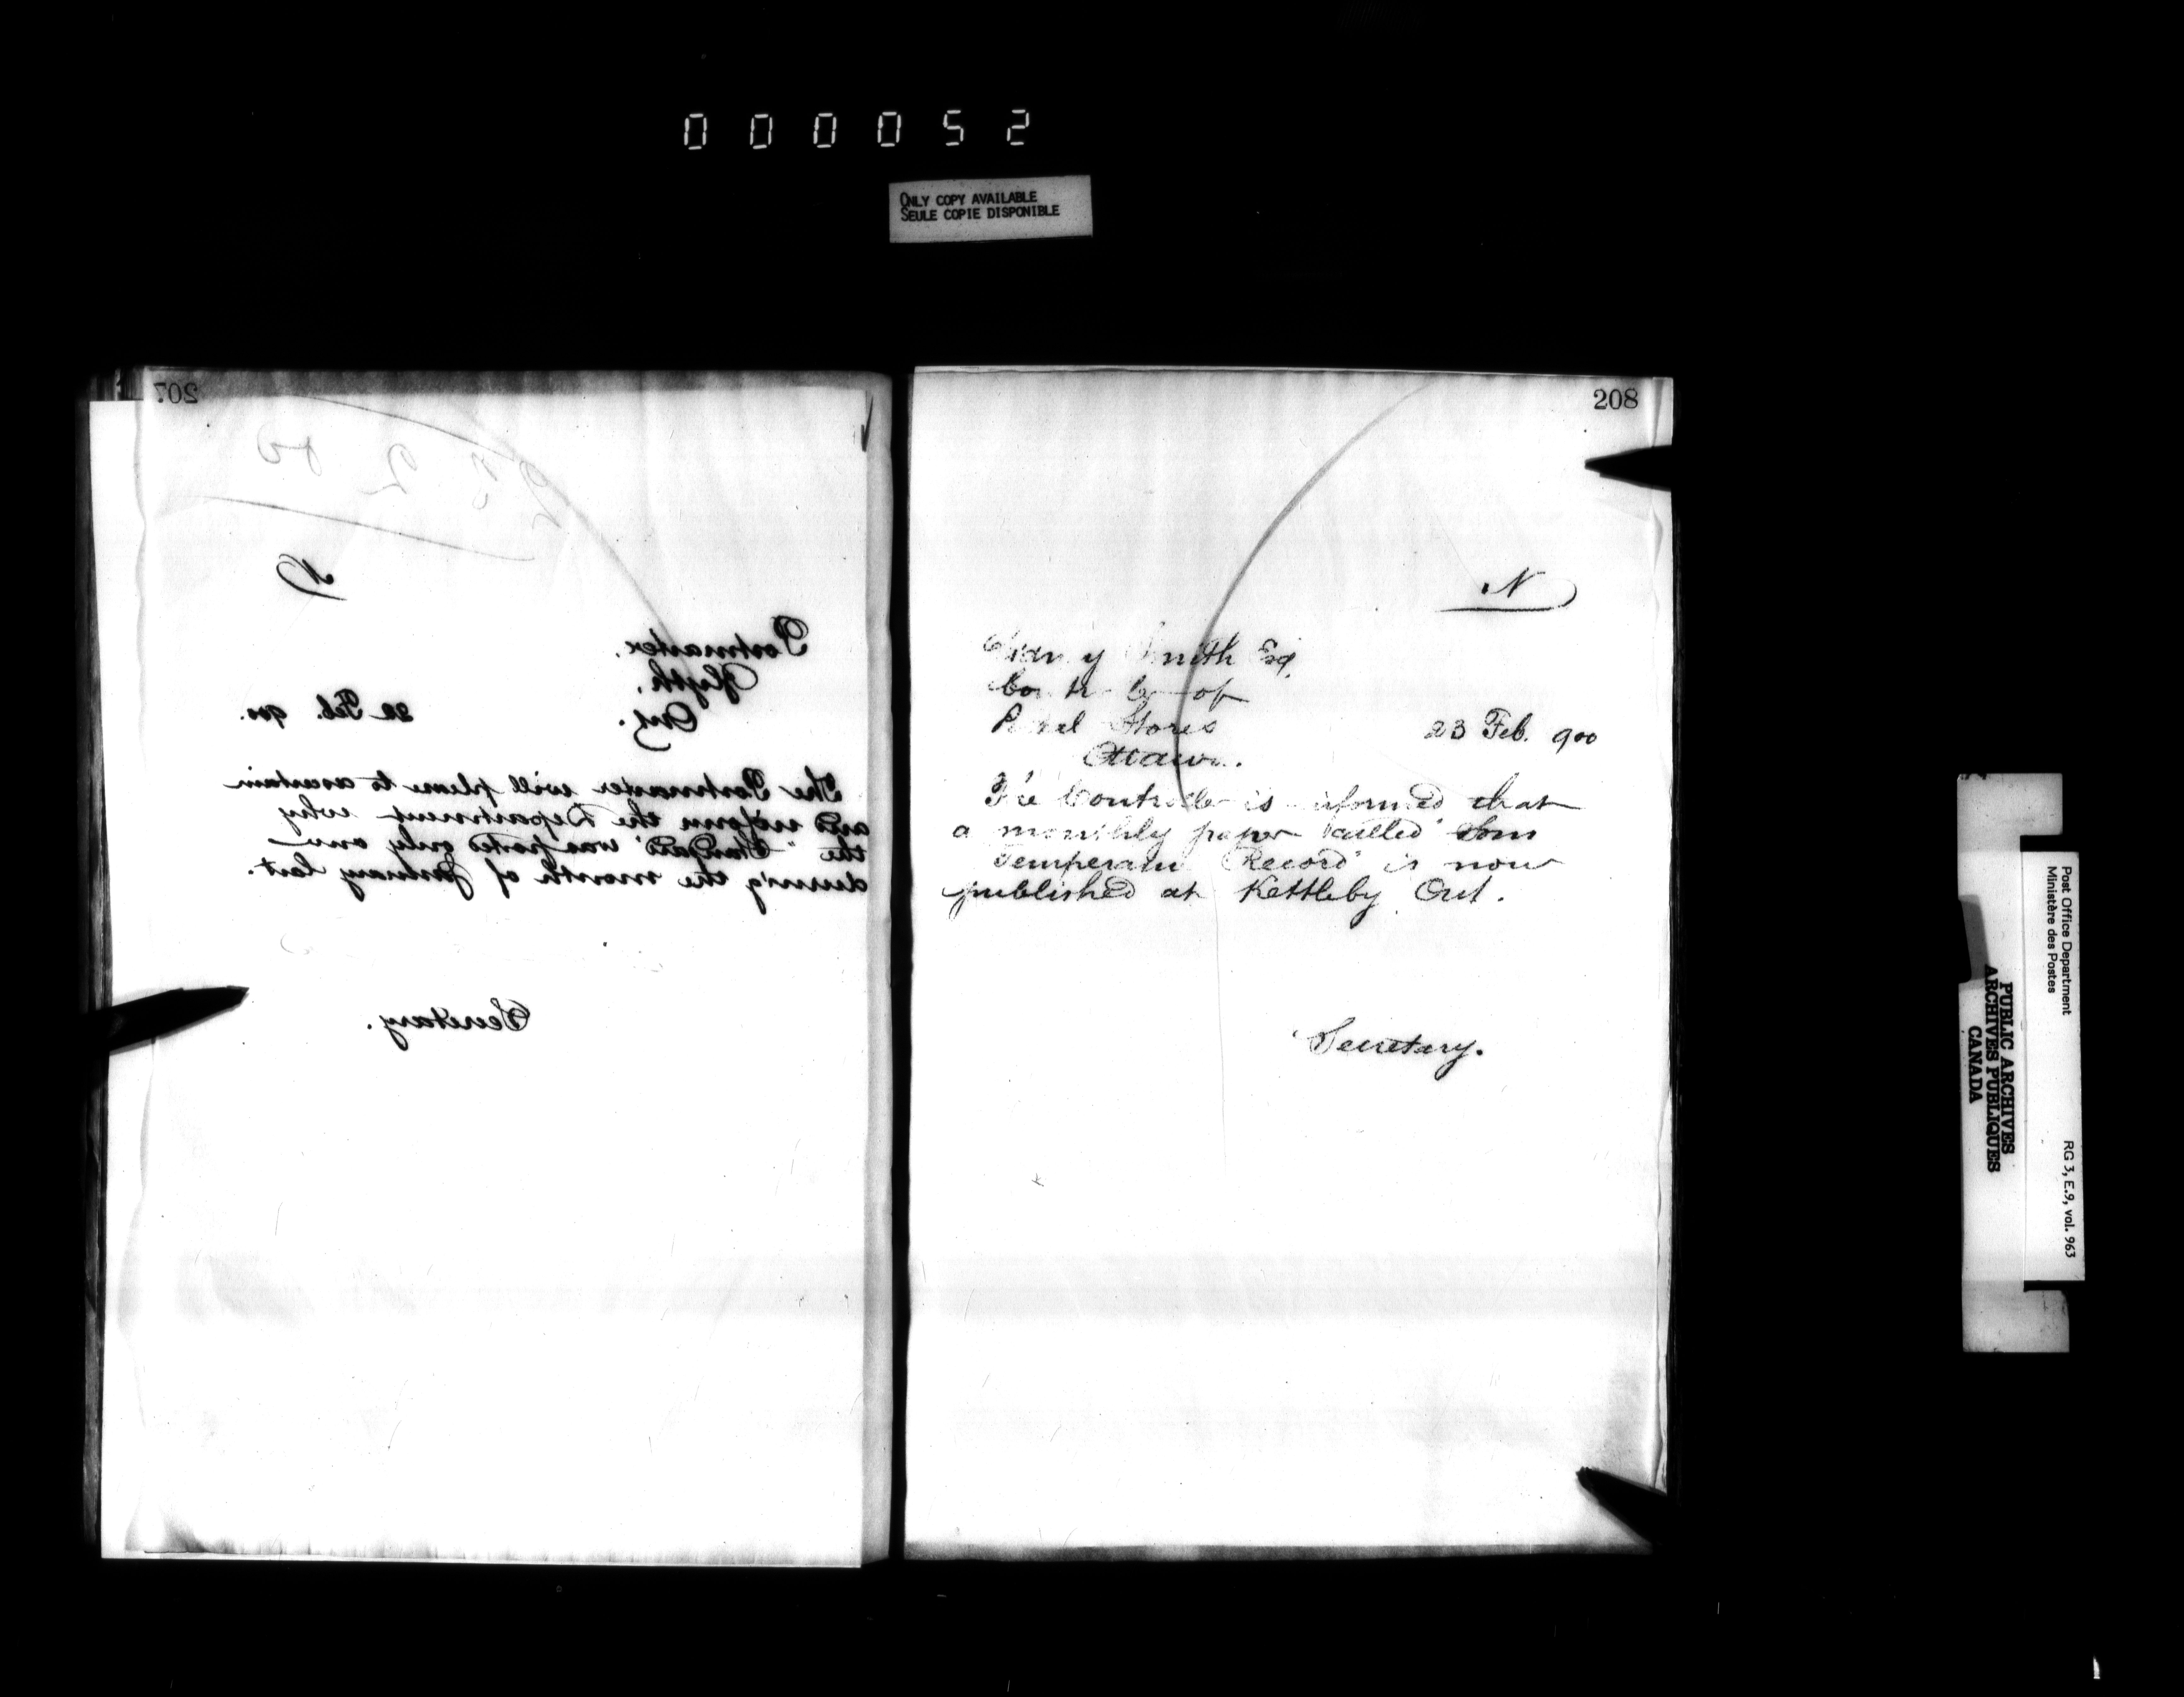 000052
ONLY COPY AVAILABLE
SEULE COPIE DISPONIBLE
207
N
Postmaster,
Blyth,
Ont.
22 Feb. 900.
The Postmaster will please to ascertain
and inform the Department why
the "Standard" was posted only once
during the month of January last.
Secretary.
208
N
Sidney Smith Esq.
Controller of
Postal Stores
Ottawa.
23 Feb. 900
The Controller is informed that
a monthly paper called "Sons
Temperance Record" is now
published at Kettleby Ont.
Secretary.
Post Office Department
Ministère des Postes
RG 3, E.9, vol. 963
PUBLIC ARCHIVES
ARCHIVES PUBLIQUES
CANADA